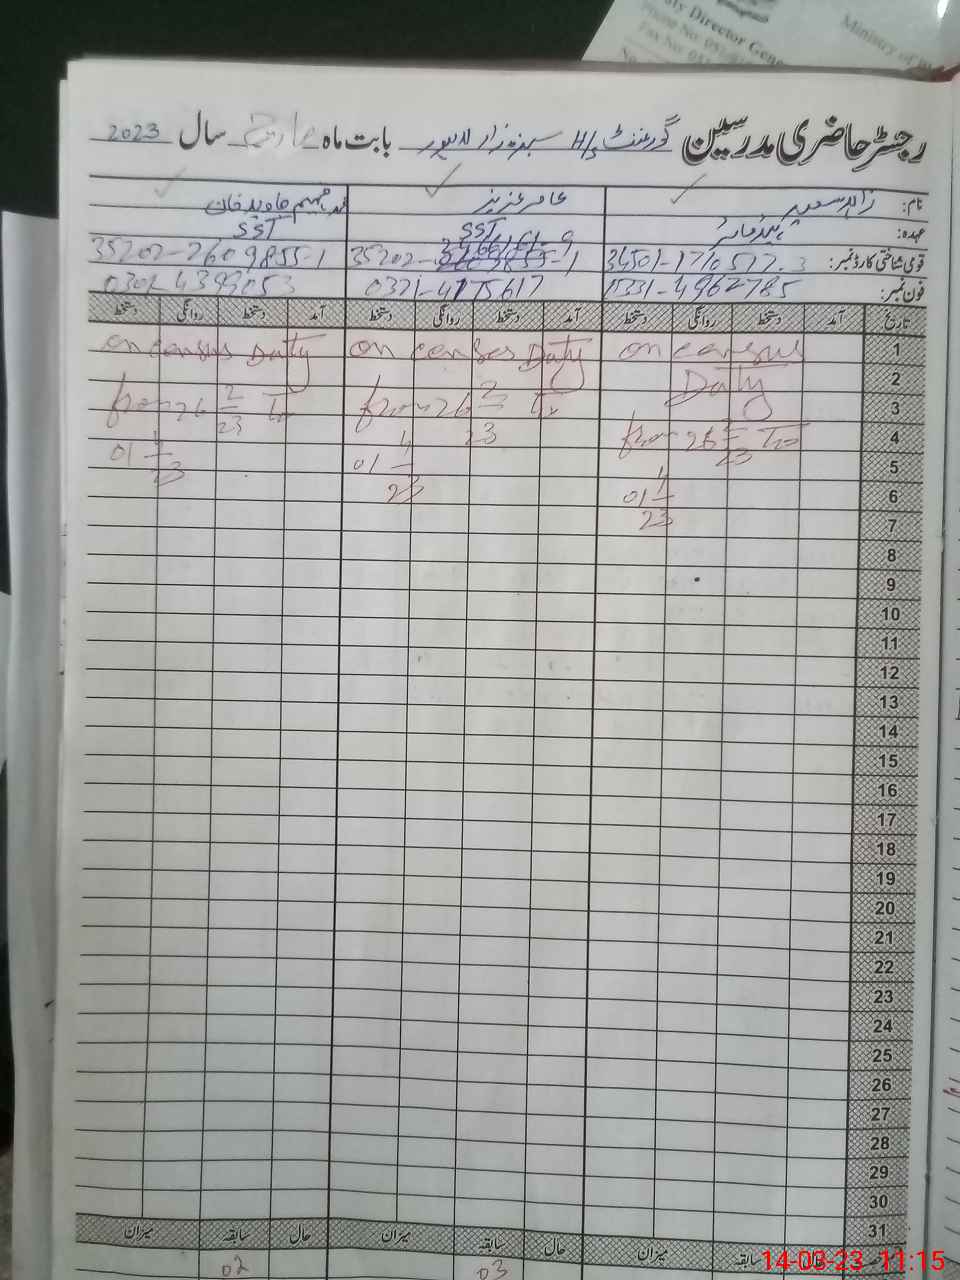 Director Gene
Ministry of
Phone No.
Fax No.
رجسٹر حاضری مدرسین گورنمنٹ H/S سبزہ زار لاہور بابت ماہ مارچ سال 2023
نام: زاہد سعید عامر عزیز محمد فہیم جاوید خان
عہدہ: ہیڈ ماسٹر SST SST
قومی شناختی کارڈ نمبر: 34501-1710517-3 35202- 35202-2609855-1
فون نمبر: 0331-4962785 0321-4175617
تاریخ آمد دستخط روانگی دستخط آمد دستخط روانگی دستخط آمد دستخط روانگی دستخط
1 on census on census Duty on census Duty
2 Duty
3 from 26 2/23 To from 26 2/23 To
4 from 26 2/23 To
5 01 4/23 01 4/23
6 01 4/23
7
8
9
10
11
12
13
14
15
16
17
18
19
20
21
22
23
24
25
26
27
28
29
30
31
حال سابقہ میزان حال سابقہ میزان حال سابقہ میزان
03 02
14-03-23 11:15